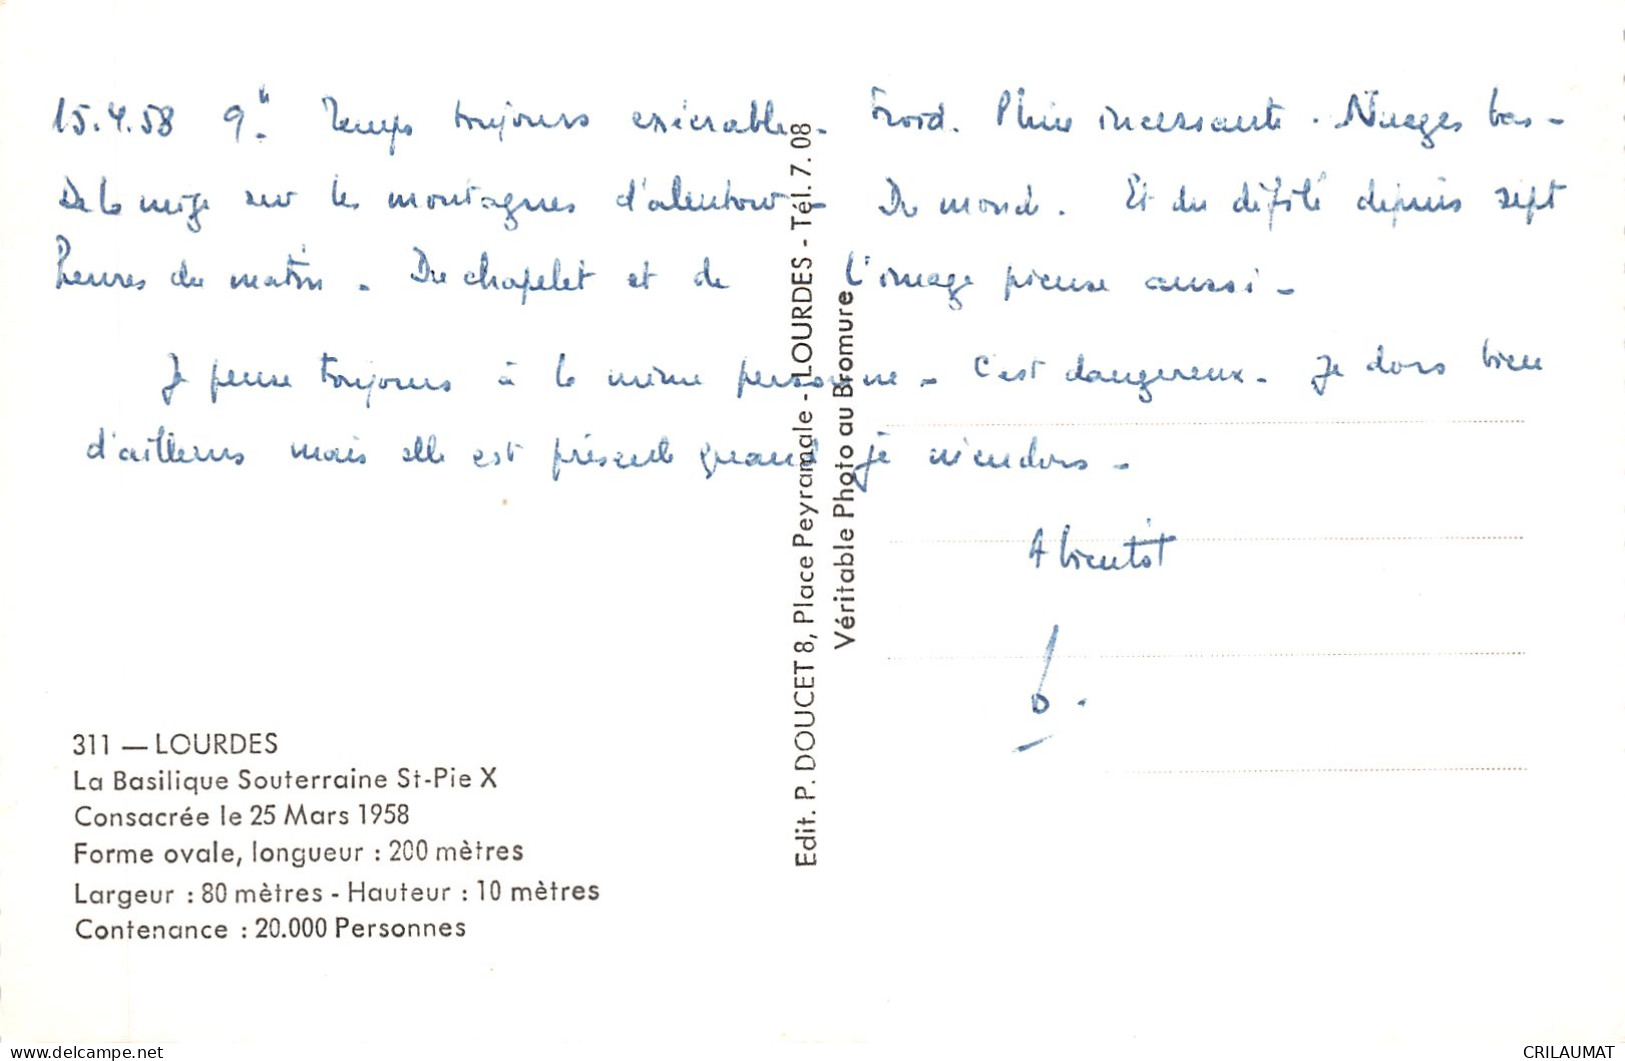 15.4.58 9h. Temps toujours exécrable. Froid. Pluie incessante. Nuages bas -
De la neige sur les montagnes d'alentour - Du monde. Et du défilé depuis sept
heures du matin. Du chapelet et de l'image pieuse aussi -
Je pense toujours à la même personne - C'est dangereux - Je dors bien
d'ailleurs mais elle est présente quand je m'endors -
A bientôt
311 — LOURDES
La Basilique Souterraine St-Pie X
Consacrée le 25 Mars 1958
Forme ovale, longueur : 200 mètres
Largeur : 80 mètres - Hauteur : 10 mètres
Contenance : 20.000 Personnes
Edit. P. DOUCET 8, Place Peyramale - LOURDES - Tél. 7. 08
Véritable Photo au Bromure
CRILAUMAT